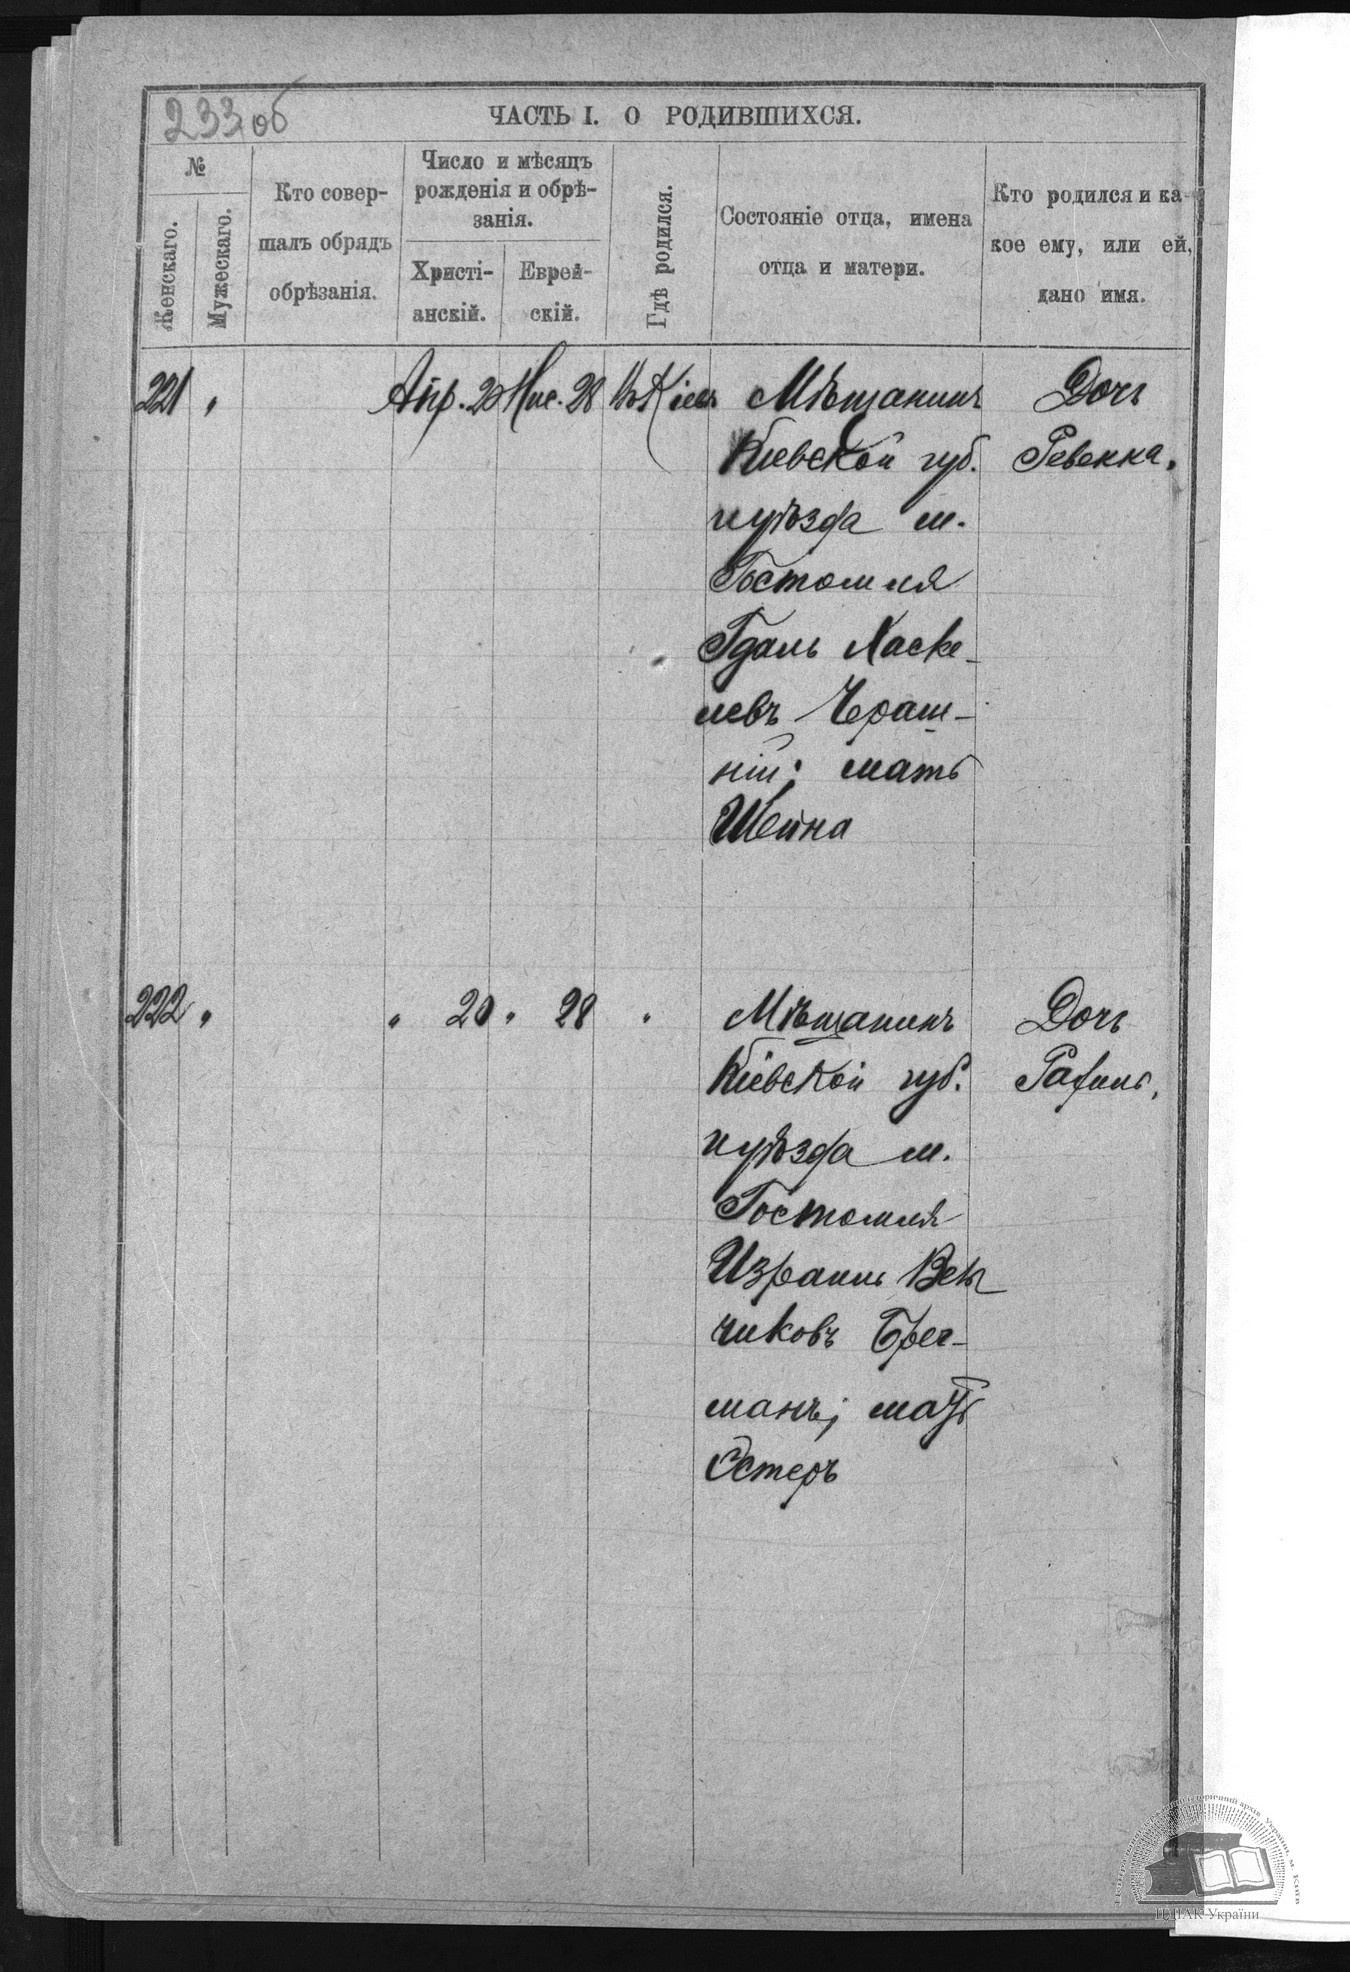 233об
ЧАСТЬ I. О РОДИВШИХСЯ.
№
Женскаго.
Мужескаго.
Кто совер-
шалъ обрядъ
обрѣзанія.
Число и мѣсяцъ
рожденія и обрѣ-
занія.
Христі-
анскій.
Еврей-
скій.
Гдѣ родился.
Состояніе отца, имена
отца и матери.
Кто родился и ка-
кое ему, или ей,
дано имя.
221 " Апр. 20 Нис. 28 Въ Кіевѣ Мѣщанинъ Дочь
Кіевской губ. Ревекка.
и уѣзда м.
Гостомля
Гдаль Хаске-
левъ Чераш-
ній; мать
Шейна
222 " " 20 " 28 " Мѣщанинъ Дочь
Кіевской губ. Рахиль.
и уѣзда м.
Гостомля
Израиль Вель
чиковъ Брег-
манъ; мать
Эстеръ
ЦДІАК України